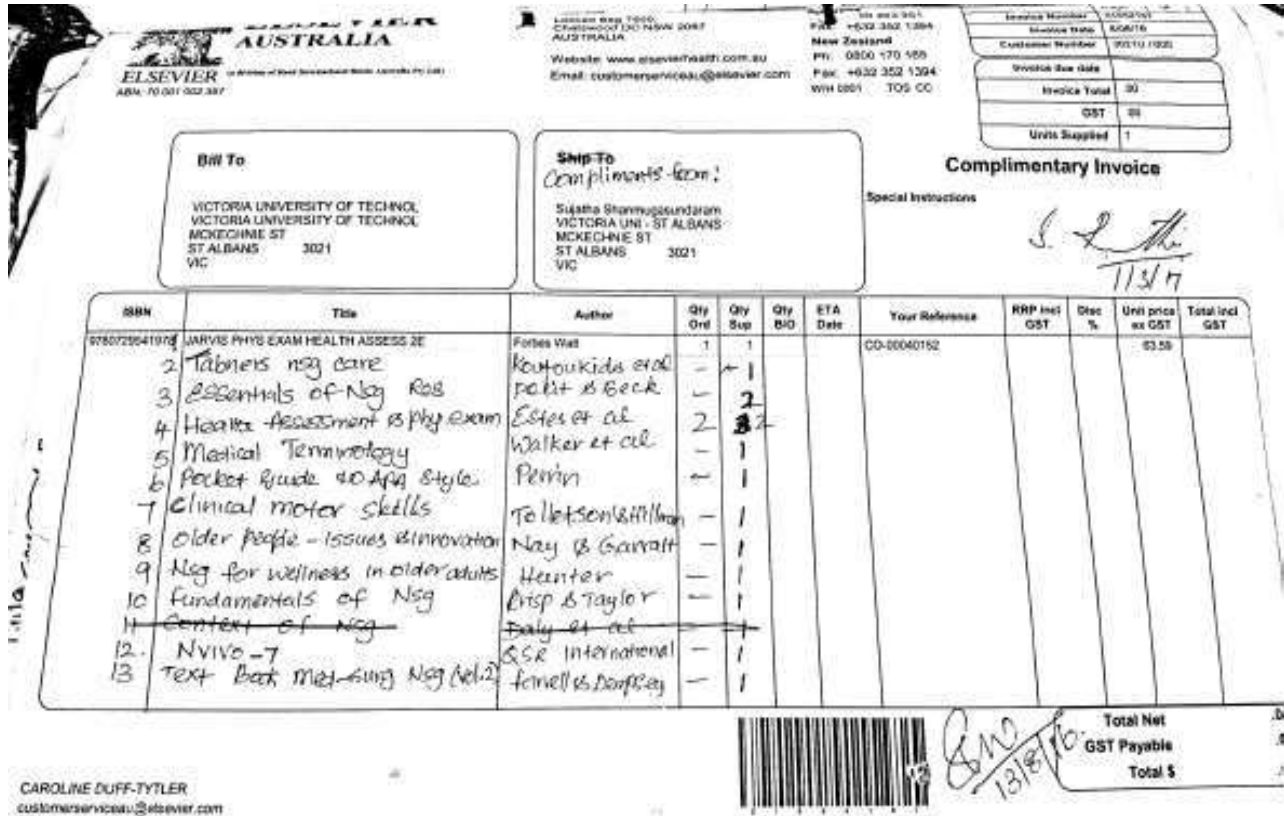 AUSTRALIA
ELSEVIER
Chatswood DC NSW 2067
AUSTRALIA
Website: www.elsevierhealth.com.au
Email: customerserviceau@elsevier.com
New Zealand
Ph: 0800 170 165
Fax: +632 352 1394
TOS CC
Invoice Number
Invoice Date
Customer Number
Invoice due date
Invoice Total .00
GST
Units Supplied 1
Bill To
VICTORIA UNIVERSITY OF TECHNOL
VICTORIA UNIVERSITY OF TECHNOL
MCKECHNIE ST
ST ALBANS 3021
VIC
Ship To
Compliments from:
Sujatha Shanmugasundaram
VICTORIA UNI - ST ALBANS
MCKECHNIE ST
ST ALBANS 3021
VIC
Complimentary Invoice
Special Instructions
ISBN Title Author Qty Ord Qty Sup Qty B/O ETA Date Your Reference RRP incl GST Disc % Unit price ex GST Total incl GST
JARVIS PHYS EXAM HEALTH ASSESS 2E Forbes Watt 1 1 CO-00040152 63.59
2 Tabners nsg care Koutoukids et al - 1
3 Essentials of Nsg Res Polit & Beck - 2
4 Health Assessment & Phy. exam Estes et al 2 2
5 Medical Terminology Walker et al - 1
6 Pocket Guide to APA Style Perrin - 1
7 Clinical motor skills Tolletson & Hillman - 1
8 Older people - issues & innovation Nay & Garratt - 1
9 Nsg for wellness in older adults Hunter - 1
10 fundamentals of Nsg Crisp & Taylor - 1
11 Context of Nsg Daly et al - 1
12. NVIVO-7 QSR International - 1
13 Text Book Med-surg Nsg (Vol.2) farrell & Dempsey - 1
13/8/16.
Total Net
GST Payable
Total $
CAROLINE DUFF-TYTLER
customerserviceau@elsevier.com